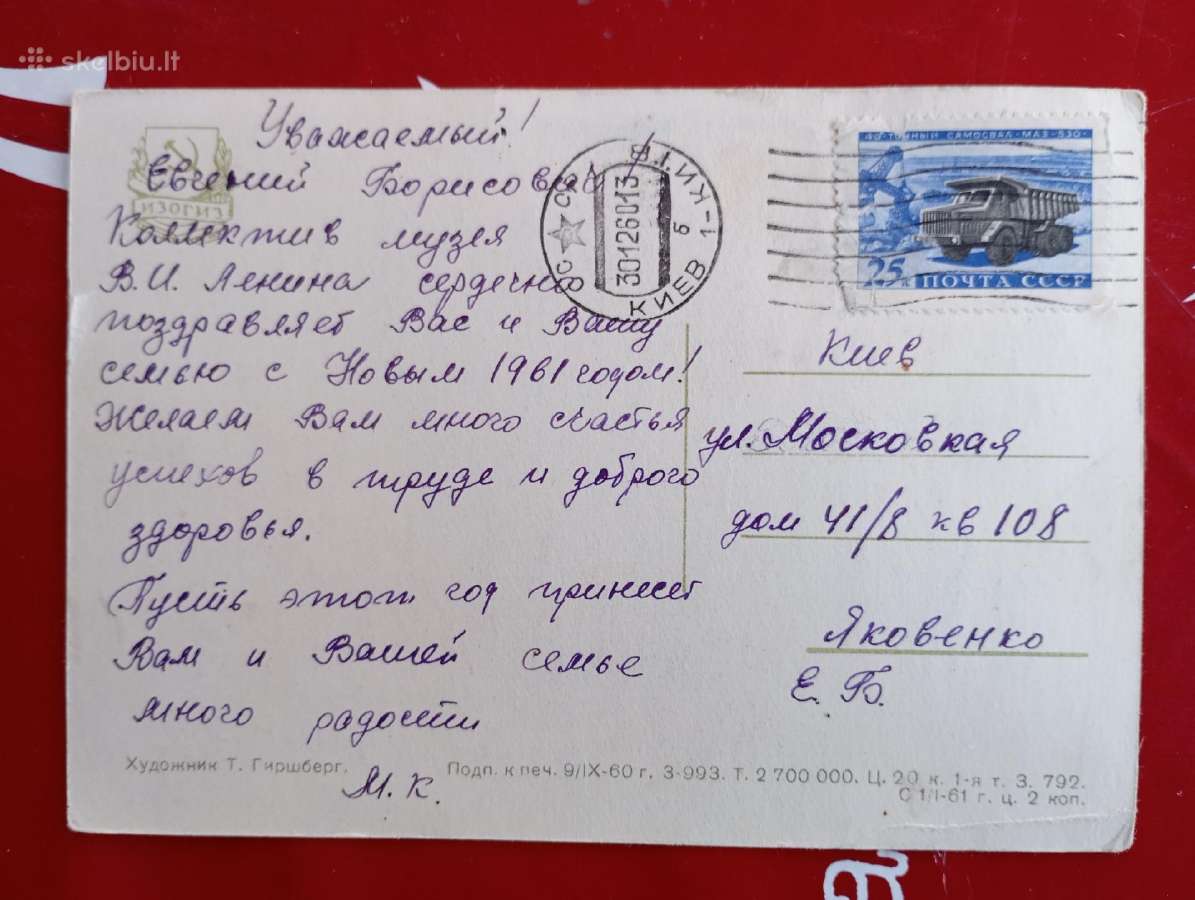 skelbiu.lt
Уважаемый!
Евгений Борисович
Коллектив музея
В.И. Ленина сердечно
поздравляет Вас и Вашу
семью с Новым 1961 годом!
Желаем Вам много счастья
успехов в труде и доброго
здоровья.
Пусть этот год принесет
Вам и Вашей семье
много радости
М. К.
ИЗОГИЗ
СССР
КИЇВ - 1
30126013
КИЕВ
б
40-ТОННЫЙ САМОСВАЛ-МАЗ-530
25 к
ПОЧТА СССР
Киев
ул. Московкая
дом 41/8 кв 108
Яковенко
Е. Б.
Художник Т. Гиршберг.
Подп. к печ. 9/IX-60 г. З-993. Т. 2 700 000. Ц. 20 к. 1-я т. З. 792.
С 1/I-61 г. ц. 2 коп.